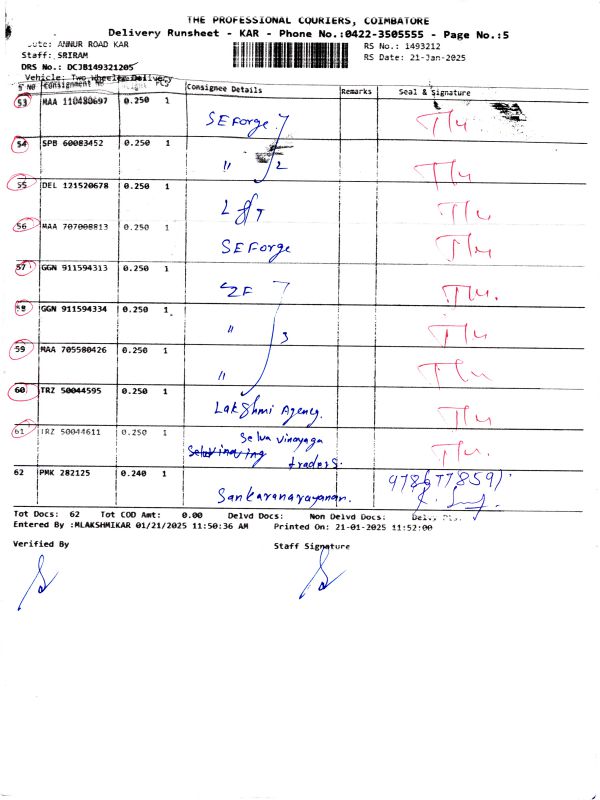 THE PROFESSIONAL COURIERS, COIMBATORE
Delivery Runsheet - KAR - Phone No.:0422-3505555 - Page No.:5
ute: ANNUR ROAD KAR RS No.: 1493212
Staff: SRIRAM RS Date: 21-Jan-2025
DRS No.: DCJB149321205
Vehicle: Two Wheeler Delivery
S No Consignment No PCS Consignee Details Remarks Seal & Signature
53 MAA 110480697 0.250 1 SEForge
54 SPB 60083452 0.250 1 " 2
55 DEL 121520678 0.250 1 L&T
56 MAA 707008813 0.250 1 SEForge
57 GGN 911594313 0.250 1 ZF
58 GGN 911594334 0.250 1 " 3
59 MAA 705580426 0.250 1 "
60 TRZ 50044595 0.250 1 Lakshmi Agency.
61 TRZ 50044611 0.250 1 Selva Vinayaga
traders.
62 PMK 282125 0.240 1 Sankaranarayanan.
Tot Docs: 62 Tot COD Amt: 0.00 Delvd Docs: Non Delvd Docs:
Entered By :MLAKSHMIKAR 01/21/2025 11:50:36 AM Printed On: 21-01-2025 11:52:00
Verified By Staff Signature